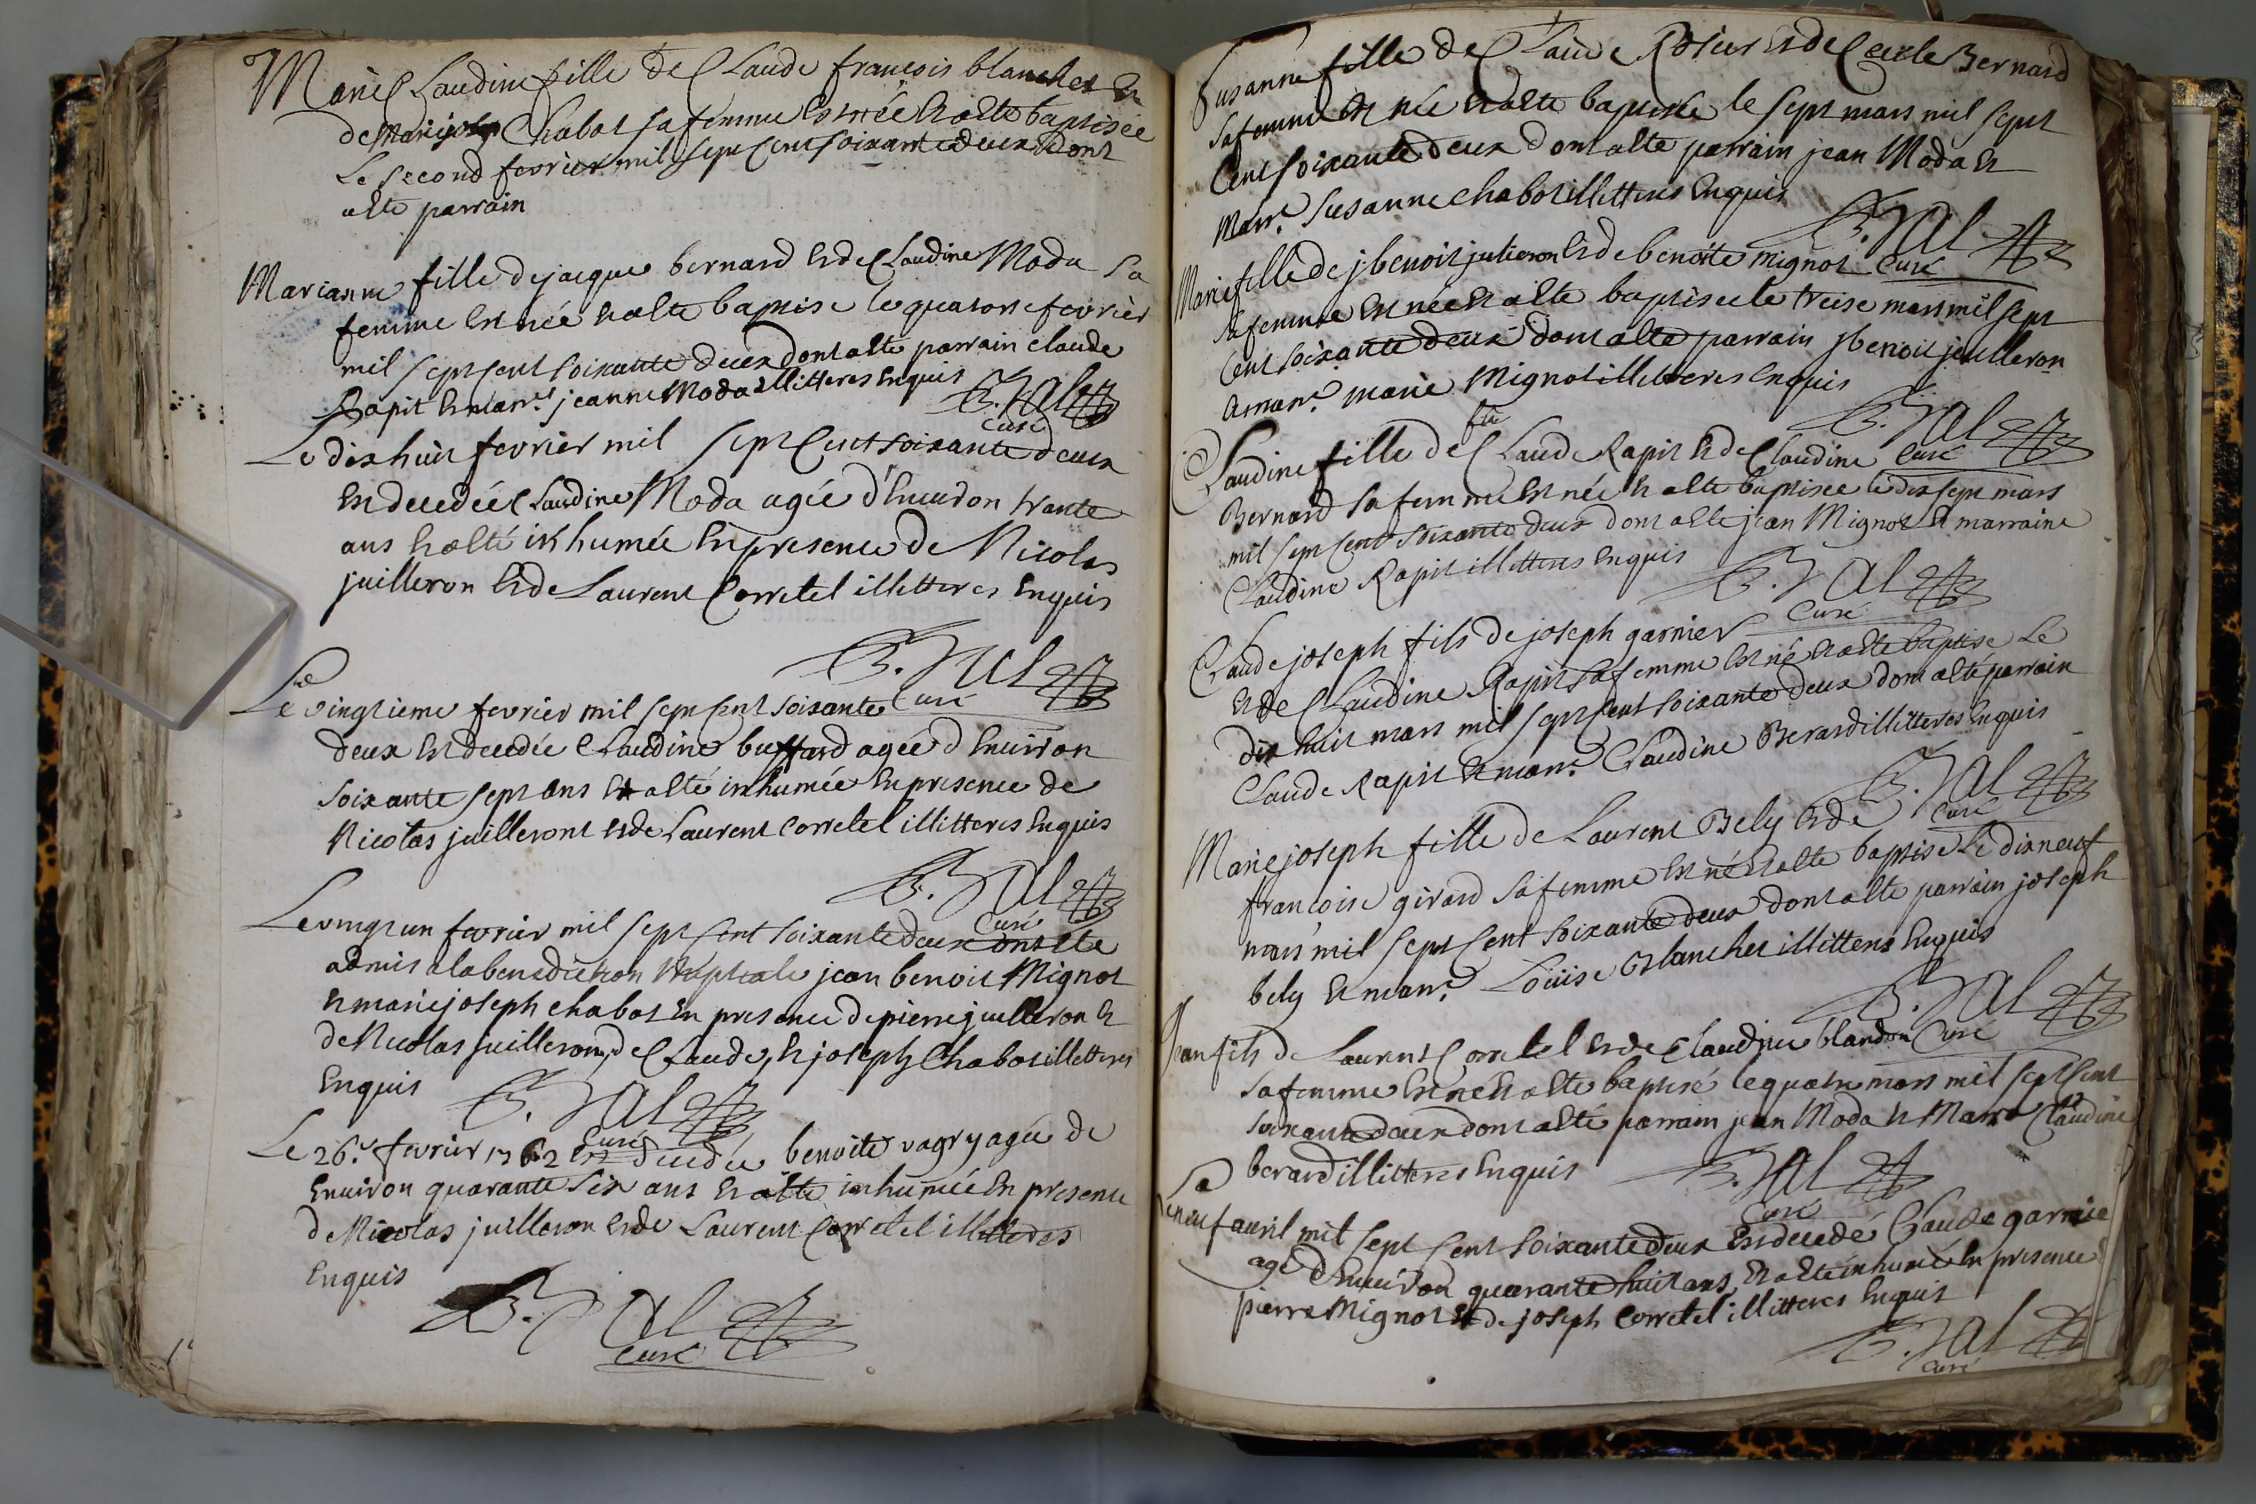 Marie Claudine fille de Claude françois blanchet et
de Marie joseph Chabot sa femme est née et a été baptisée
Le second fevrier mil sept cent soixante deux dont
a eté parrain
Marianne fille de jacque bernard et de Claudine Moda sa
femme est née et a eté baptise le quatorse fevrier
mil sept cent soixante deux dont a eté parrain claude
Rapit et marr.e jeanne Moda illitteres enquis
B. Jal
Curé
Le dix huit fevrier mil sept Cent soixante deux
est decedée Claudine Moda agée d'Environ trante
ans et a eté inhumée en presence de Nicolas
juilleron et de Laurent Corretel illitteres enquis
B. Jal
Curé
Le vingtieme fevrier mil sept Cent soixante
deux est decedée Claudine buffard agée d'Environ
soixante sept ans et a eté inhumée en presence de
Nicolas juilleront et de Laurent Corretel illitteres enquis
B. Jal
Curé
Le vingt un fevrier mil sept Cent soixante deux ont ete
admis a la benediction Nuptiale jean benoit Mignot
et marie joseph chabot en presence de pierre juilleron et
de Nicolas juilleron, de Claude, et joseph Chabot illetteres
enquis B. Jal
Curé
Le 26.e fevrier 1762 est decedée benoite vagry agée de
Environ quarante six ans et a eté inhumée en presence
de Nicolas juilleron et de Laurent Corretel illitteres
enquis
B. Jal
Curé
Susanne fille de Claude Rosier et de Cecile Bernard
sa femme est née et a eté baptisée le sept mars mil sept
Cent soixante deux dont a eté parrain jean Moda et
Marr.e Susanne Chabot illitteres enquis
B. Jal
Curé
Marie fille de jbenoit julieron et de benoite mignot
sa femme est née et a eté baptisée le treise mars mil sept
Cent soixante deux dont a eté parrain jbenoit juilleron
et marr.e marie Mignot illitteres enquis
B. Jal
Curé
Claudine fille de fû Claude Rapit et de Claudine
Bernard sa femme est née et a eté baptisée le dix sept mars
mil sept Cent soixante deux dont a eté jean Mignot et marraine
Claudine Rapit illitteres enquis
B. Jal
Curé
Claude joseph fils de joseph garnier
et de Claudine Rapit sa femme est né et a eté baptise Le
dix huit mars mil sept Cent soixante deux dont a eté parrain
Claude Rapit et marr.e Claudine Berard illitteres enquis
B. Jal
Curé
Marie joseph fille de Laurent Bely et de
françoise girard sa femme est né et a eté baptise Le dix neuf
mars mil sept Cent soixante deux dont a eté parrain joseph
bely et marr.e Loüise Blanchet illitteres enquis
B. Jal
Curé
Jean fils de Laurent Corretel et de Claudine blandon
sa femme est né et a eté baptisé le quatre mars mil sept Cent
soixante deux dont a eté parrain jean Moda et Marr.e Claudine
berard illitteres enquis
B. Jal
Curé
Le neuf avril mil sept Cent soixante deux est decedé Claude garnie
agé d'Environ quarante huit ans, et a eté inhumé en presence
pierre Mignot et de joseph Corretel illitteres enquis
B. Jal
Curé